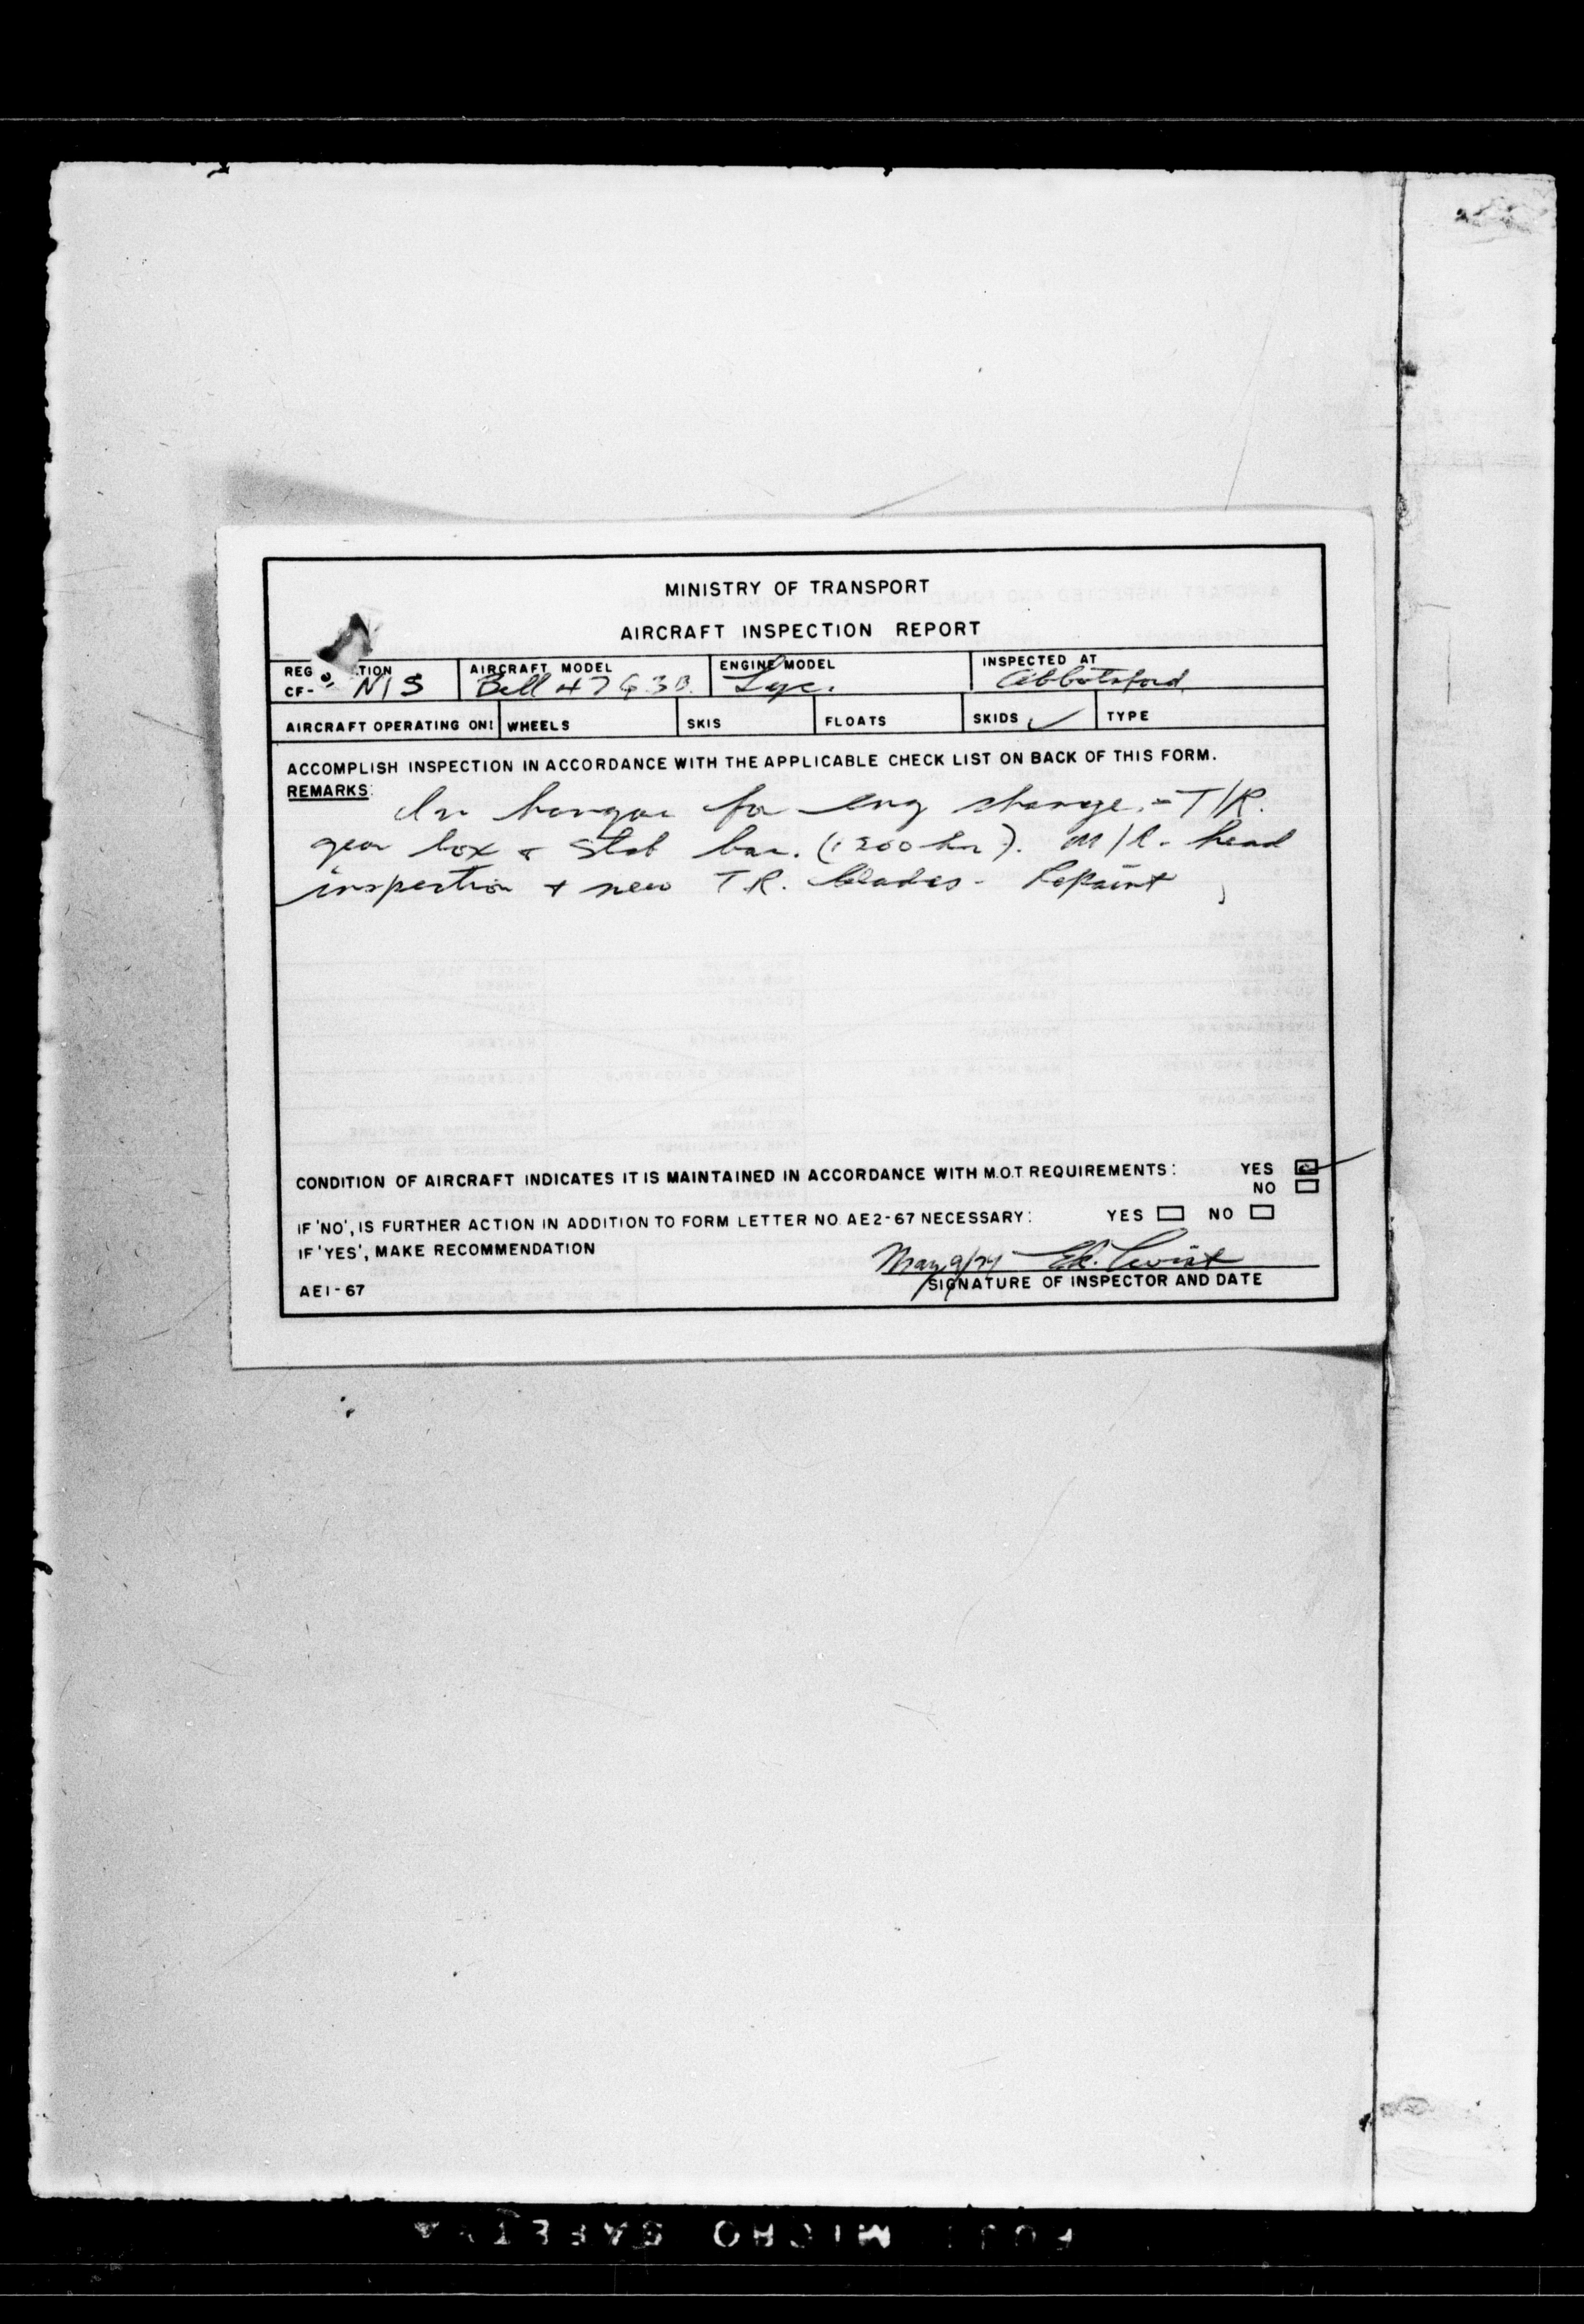 MINISTRY OF TRANSPORT
AIRCRAFT INSPECTION REPORT
REG TION AIRCRAFT MODEL ENGINE MODEL INSPECTED AT
CF- NIS Bell 47 G 3B. Lyc. Abbotsford
AIRCRAFT OPERATING ON: WHEELS SKIS FLOATS SKIDS ✓ TYPE
ACCOMPLISH INSPECTION IN ACCORDANCE WITH THE APPLICABLE CHECK LIST ON BACK OF THIS FORM.
REMARKS: In hangar for eng change. - T/R.
gear box & Stab bar. (1200 hr). M/R. head
inspection & new T.R. blades - Repaint
CONDITION OF AIRCRAFT INDICATES IT IS MAINTAINED IN ACCORDANCE WITH M.O.T REQUIREMENTS: YES
NO
IF 'NO', IS FURTHER ACTION IN ADDITION TO FORM LETTER NO. AE2-67 NECESSARY: YES NO
IF 'YES', MAKE RECOMMENDATION
May 9/74
AE1-67 SIGNATURE OF INSPECTOR AND DATE